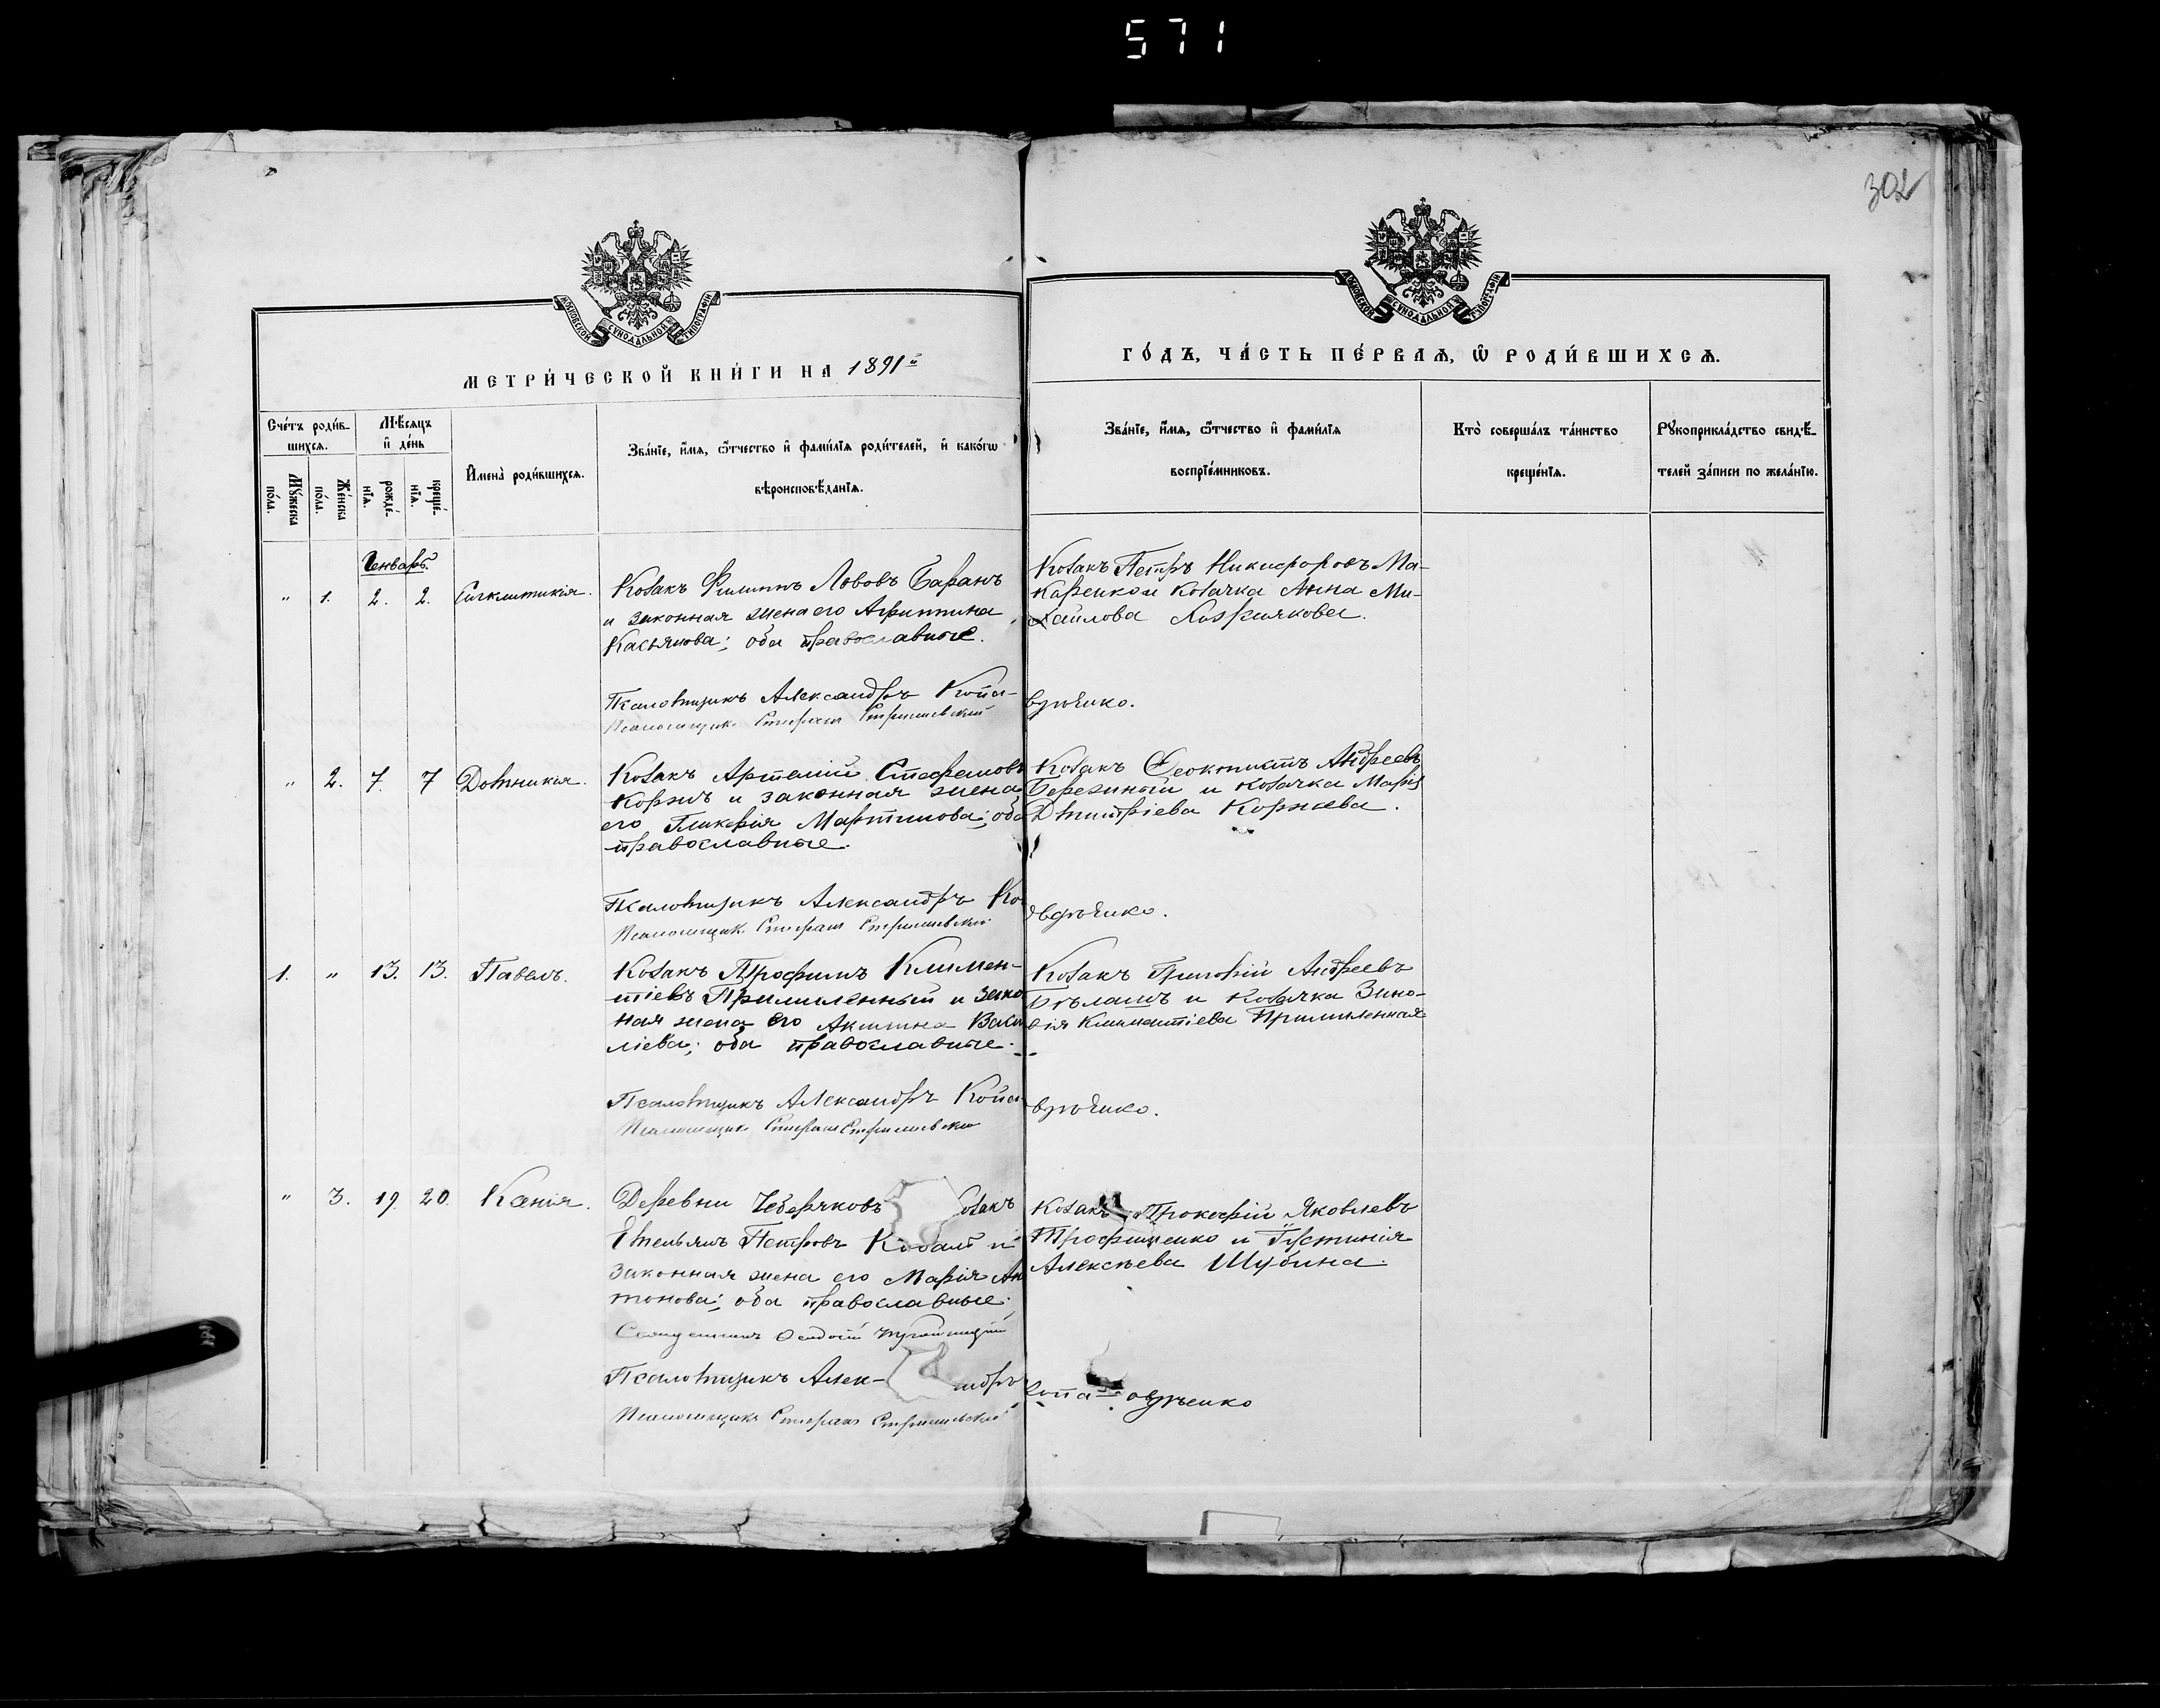 571
302
МОСКОВСКОЙ СѴНОДАЛЬНОЙ ТИПОГРАФІИ
МОСКОВСКОЙ СѴНОДАЛЬНОЙ ТИПОГРАФІИ
МЕТРИ́ЧЕСКОЙ КНИ́ГИ НА 1891й
ГО́ДЪ, ЧА́СТЬ ПЕ́РВАѦ, Ѽ РОДИ́ВШИХСѦ.
Сче́тъ роди́в-
шихсѧ.
Мꙋ́жеска по́ла.
Же́нска по́ла.
Мѣ́сѧцъ
и҆ де́нь
рожде́-
нїѧ.
креще́-
нїѧ.
И҆мена̀ роди́вшихсѧ.
Зва́нїе, и҆́мѧ, ѻ҆́тчество и҆ фами́лїѧ роди́телей, и҆ како́гѡ
вѣроисповѣ́данїѧ.
Зва́нїе, и҆́мѧ, ѻ҆́тчество и҆ фами́лїѧ
воспрїе́мниковъ.
Кто̀ соверша́лъ та́инство
креще́нїѧ.
Рꙋкоприкла́дство свидѣ́-
телей за́писи по жела́нїю.
Генварь.
" 1. 2. 2. Сигклитикія.
Козакъ Филиппъ Львовъ Баранъ
и законная жена его Агриппина
Касьянова; оба православные.
Козакъ Петръ Никифоровъ Ма-
каренко и козачка Анна Ми-
хайлова
Псаломщикъ Александръ Копа-
Псаломщикъ Стефанъ
" 2. 7. 7 Домникія.
Козакъ Артемій Стефановъ
Коржъ и законная жена
его Гликерія Мартинова; оба
православные.
Козакъ Ѳеоктистъ Андреевъ
Березный и козачка Марія
Дмитріева Коржева.
Псаломщикъ Александръ
Псаломщикъ Стефанъ
1. " 13. 13. Павелъ.
Козакъ Трофимъ Климен-
тіевъ Примиленный и закон
ная жена его Акилина Васи
ліева; оба православные.
Козакъ Григорій Андреевъ
Бѣлашъ и козачка Зино-
вія Климентіева Примиленная
Псаломщикъ Александръ
Псаломщикъ Стефанъ
" 3. 19. 20. Ксенія.
Деревни Чеберяковъ козакъ
Емельянъ Петровъ и
законная жена его Марія Ан
тонова; оба православные.
Козакъ Прокофій Яковлевъ
Трофименко и Іустинія
Алексѣева Шубина.
Священникъ
Псаломщикъ Алек-сандръ
Псаломщикъ Стефанъ